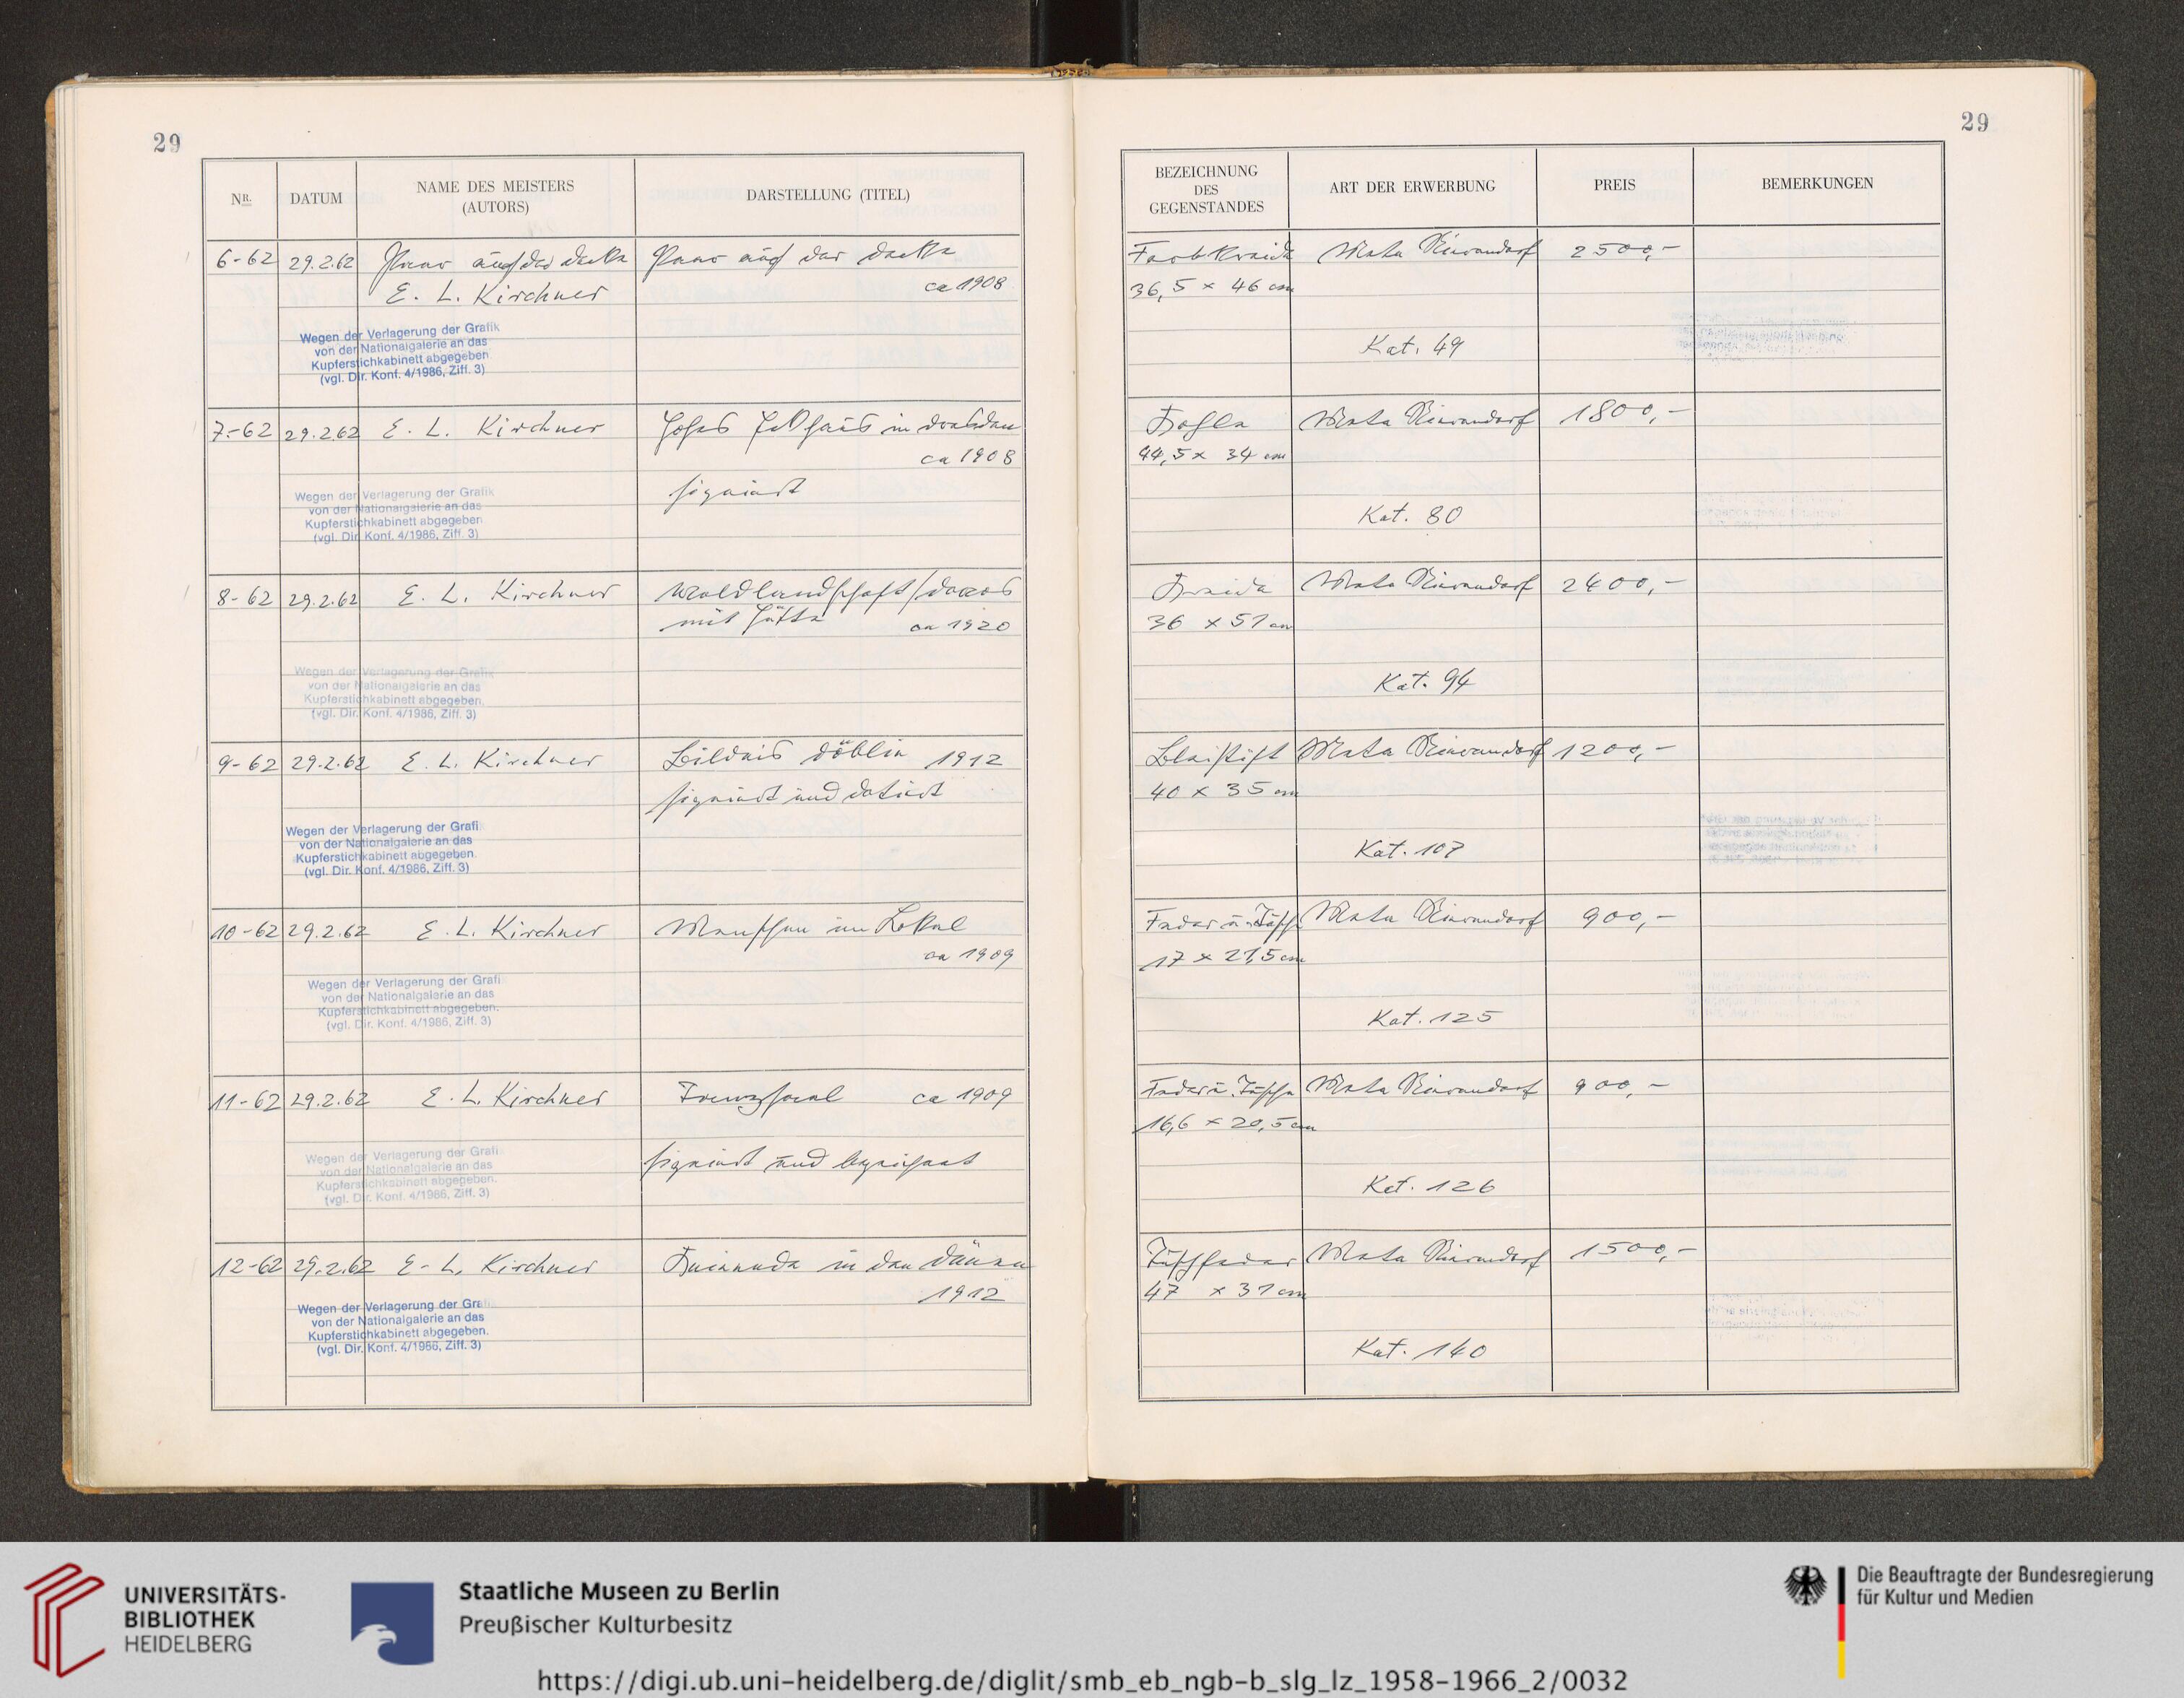 29
29
NR.
DATUM
NAME DES MEISTERS
(AUTORS)
DARSTELLUNG (TITEL)
BEZEICHNUNG
DES
GEGENSTANDES
ART DER ERWERBUNG
PREIS
BEMERKUNGEN
6-62 29.2.62 Paar auf der decke Paar auf der decke Farbkreide Meta Nierendorf 2500,-
E. L. Kirchner ca 1908 36,5 x 46 cm
Wegen der Verlagerung der Grafik
von der Nationalgalerie an das
Kupferstichkabinett abgegeben
(vgl. Dir. Konf. 4/1986, Ziff. 3)
Kat. 49
7-62 29.2.62 E. L. Kirchner Hohes in dresden Kohle Meta Nierendorf 1800,-
ca 1908 44,5 x 34 cm
signiert
Wegen der Verlagerung der Grafik
von der Nationalgalerie an das
Kupferstichkabinett abgegeben
(vgl. Dir. Konf. 4/1986, Ziff. 3)
Kat. 80
8-62 29.2.62 E. L. Kirchner Waldlandschaft/davos Kreide Meta Nierendorf 2400,-
mit Hütte ca 1920 36 x 51 cm
Wegen der Verlagerung der Grafik
von der Nationalgalerie an das
Kupferstichkabinett abgegeben.
(vgl. Dir. Konf. 4/1986, Ziff. 3)
Kat. 94
9-62 29.2.62 E. L. Kirchner Bildnis döblin 1912 Bleistift Meta Nierendorf 1200,-
signiert und datiert 40 x 35 cm
Wegen der Verlagerung der Grafi
von der Nationalgalerie an das
Kupferstichkabinett abgegeben.
(vgl. Dir. Konf. 4/1986, Ziff. 3)
Kat. 107
10-62 29.2.62 E. L. Kirchner Menschen im Lokal Feder u. Tusche Meta Nierendorf 900,-
ca 1909 17 x 21,5 cm
Wegen der Verlagerung der Grafi
von der Nationalgalerie an das
Kupferstichkabinett abgegeben.
(vgl. Dir. Konf. 4/1986, Ziff. 3)
Kat. 125
11-62 29.2.62 E. L. Kirchner Tanzsaal ca 1909 Feder u. Tusche Meta Nierendorf 900,-
16,6 x 20,5 cm
signiert und bezeichnet
Wegen der Verlagerung der Grafi
von der Nationalgalerie an das
Kupferstichkabinett abgegeben.
(vgl. Dir. Konf. 4/1986, Ziff. 3)
Kat. 126
12-62 29.2.62 E. L. Kirchner Knieende in den dünen Tuschfeder Meta Nierendorf 1500,-
1912 47 x 31 cm
Wegen der Verlagerung der Gra
von der Nationalgalerie an das
Kupferstichkabinett abgegeben.
(vgl. Dir. Konf. 4/1986, Ziff. 3)
Kat. 140
UNIVERSITÄTS-
BIBLIOTHEK
HEIDELBERG
Staatliche Museen zu Berlin
Preußischer Kulturbesitz
Die Beauftragte der Bundesregierung
für Kultur und Medien
https://digi.ub.uni-heidelberg.de/diglit/smb_eb_ngb-b_slg_lz_1958-1966_2/0032